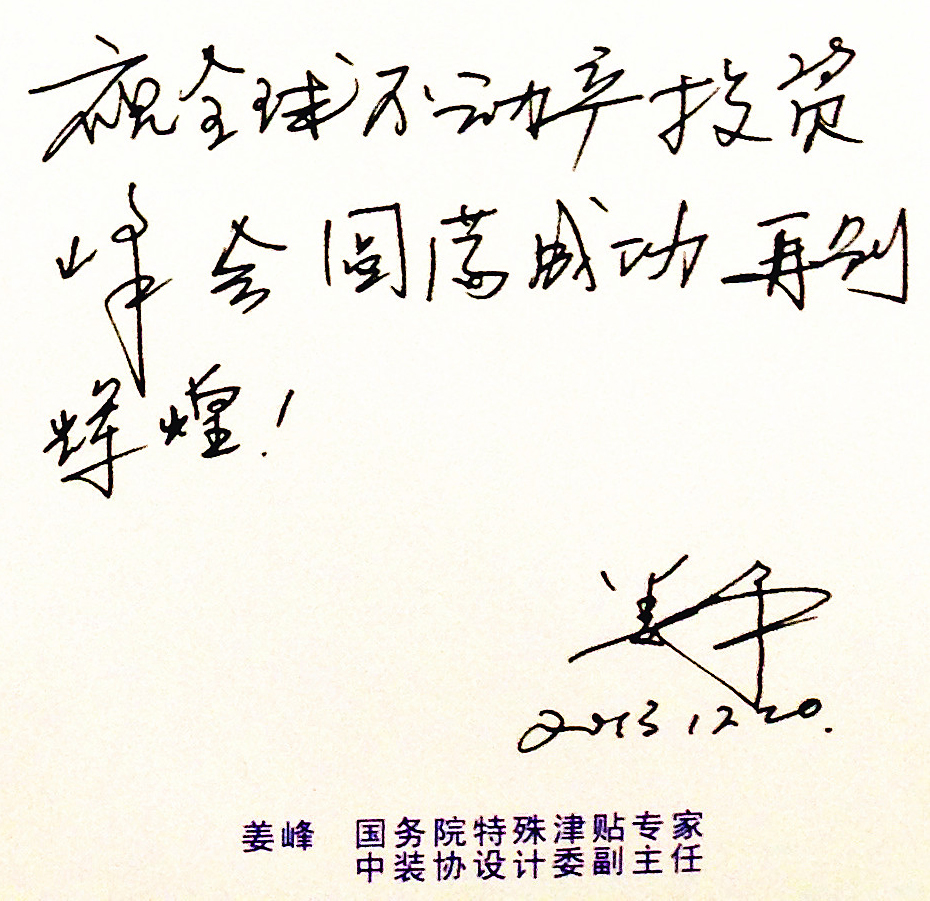 祝全球不动产投资
峰会圆满成功 再创
辉煌!
姜峰
2013.12.20.
姜峰 国务院特殊津贴专家
中装协设计委副主任